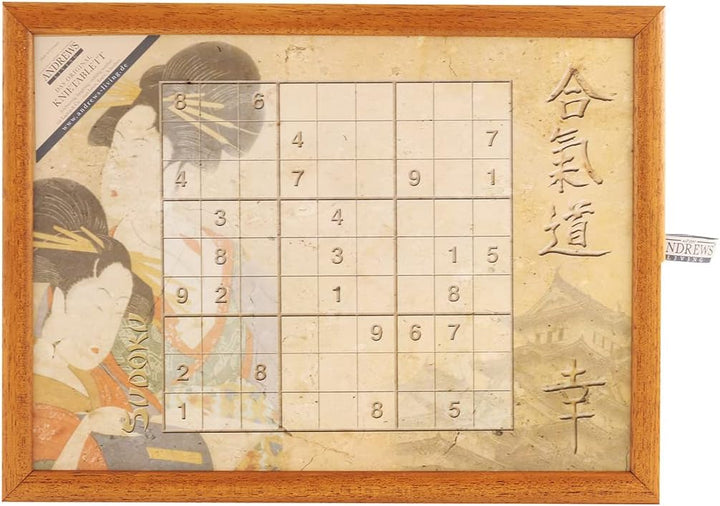 ANDREWS
DAS ORIGINAL
KNIETABLETT
www.andrews-living.de
8 6
4 7
4 7 9 1
3 4
8 3 1 5
9 2 1 8
9 6 7
2 8
1 8 5
SUDOKU
合
氣
道
幸
ANDREWS
LIVING